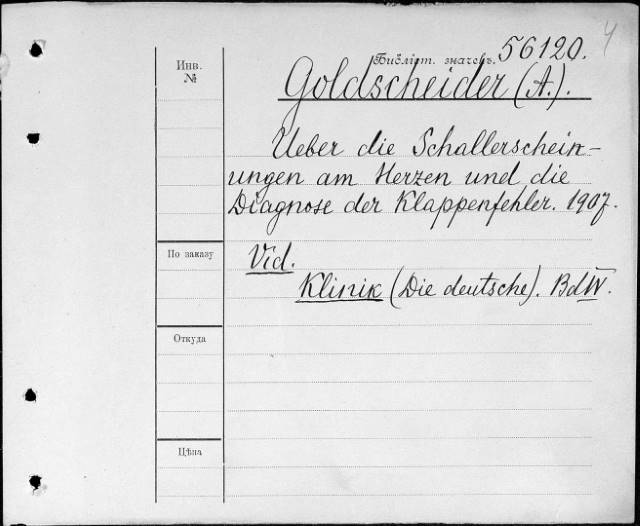 4
Библіот. значекъ. 56120.
Инв.
№
Goldscheider (A.).
Ueber die Schallerschein-
ungen am Herzen und die
Diagnose der Klappenfehler. 1907.
По заказу
Vid.
Klinik (Die deutsche). Bd IV.
Откуда
Цѣна